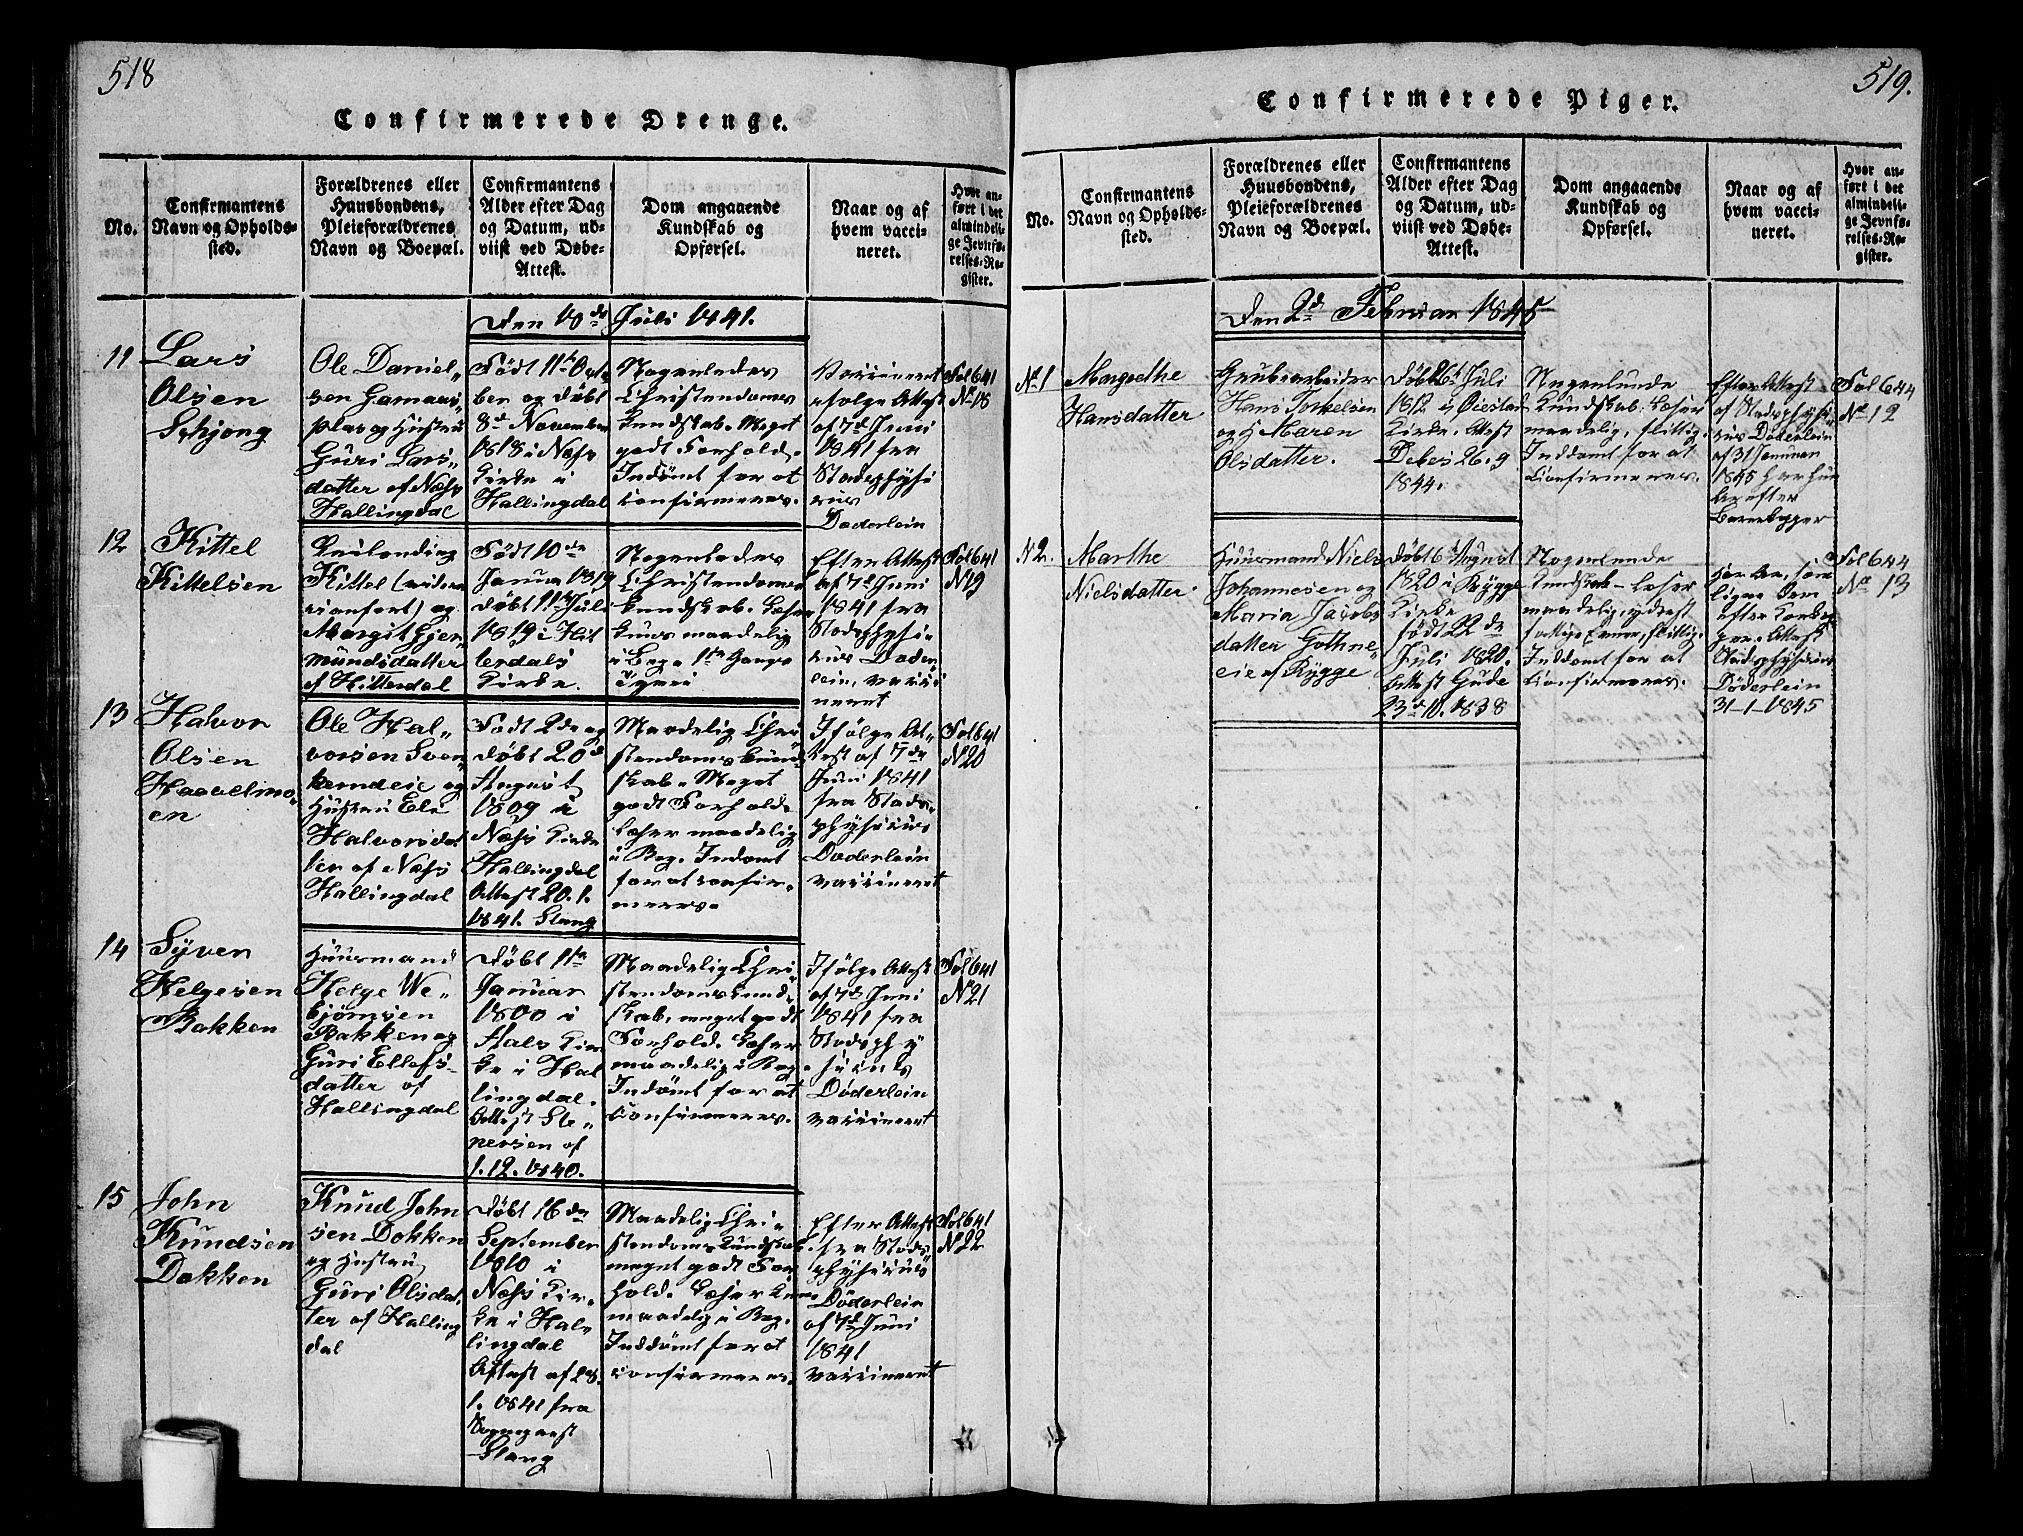 518
Confirmerede Drenge.
No.
Confirmantens
Navn og Opholds-
sted.
Forældrenes eller
Huusbondens,
Pleieforældrenes
Navn og Boepæl.
Confirmantens
Alder efter Dag
og Datum, ud-
viist ved Døbe-
Attest.
Dom angaaende
Kundskab og
Opførsel.
Naar og af
hvem vacci-
neret.
Hvor an-
ført i det
almindeli-
ge Jevnfø-
relses-Re-
gister.
Den 18de Juli 1841.
11
Lars
Olsen
Schjong
Ole Daniel-
sen Gamaas-
plas og Hustru
Guri Lars-
datter af Næss
Hallingdal
Født 11te Octo
ber og døbt
8de November
1818 i Næss
Kirke i
Hallingdal
Nogenledes
Christendoms
Kundskab. Meget
godt Forhold.
Inddømt for at
confirmeres.
Vaccineret
ifølge Attest
af 7de Juni
1841 fra
Stadsphysi
cus
Døderlein
Fol 641
No 18
12
Kittel
Kittelsen
Kittel
og
Margit Gjer
mundsdatter
af Hitterdal
Født 10de
Januar 1819
døbt 11te Juli
1819 i Hit
terdals
Kirke.
Nogenledes
Christendoms
Kundskab. Læser
maadelig
i Bog.
Efter Attest
af 7de Juni
1841 fra
Stadsphysi-
cus Døder
lein, vacci
neret
Fol 641
N 19
13
Halvor
Olsen
Haaelmo-
en
Ole Hal-
vorsen Sven
kerudeie og
Hustru Eli
Halvorsdat
ter af Næss
Hallingdal
Født 2de og
døbt 20de
August
1809 i
Næss Kirke
Hallingdal
Attest 20.1.
1841. Stang
Maadelig Chri
stendoms Kund
skab. Meget
godt Forhold.
Læser maadelig
i Bog. Inddømt
for at confir-
meres.
Ifølge At-
test af 7de
Juni 1841
fra Stads-
physicus
Døderlein
vaccineret
Fol 641
N 20
14
Syver
Helgesen
Bakken
Huusmand
Helge We-
bjørnsen
Bakken og
Guri Ellefs-
datter af
Hallingdal
Døbt 11te
Januar
1800 i
Aals Kir
ke i Hal
lingdal.
Attest Ste-
nersen af
1.12.1840.
Maadelig Chri-
stendomskund-
skab, meget godt
Forhold. Læser
maadelig i Bog.
Inddømt for at
confirmeres.
Ifølge Attest
af 7de Juni
1841 fra
Stadsphy
sicus
Døderlein
vaccineret
Fol 641
No 21
15
John
Knudsen
Dokken
Knud John
sen Dokken
og Hustru
Guri Olsdat
ter af Halling
dal
Døbt 16de
September
1810 i
Næss Kir-
ke i Hal-
lingdal
Attest af 28.
1. 1841 fra
Sogneprest
Stang
Maadelig Chri-
stendoms Kundskab.
meget godt For
hold. Læser kun
maadelig i Bog.
Inddømt for at
confirmeres.
Efter Attest
fra Stads
physicus
Døderlein
af 7de Juni
1841
vaccineret
Fol 641
N 22
519.
Confirmerede Piger.
No.
Confirmantens
Navn og Opholds-
sted.
Forældrenes eller
Huusbondens,
Pleieforældrenes
Navn og Boepæl.
Confirmantens
Alder efter Dag
og Datum, ud-
viist ved Døbe-
Attest.
Dom angaaende
Kundskab og
Opførsel.
Naar og af
hvem vacci-
neret.
Hvor an-
ført i det
almindeli-
ge Jevnfø-
relses-Re-
gister.
Den 2de Februar 1845
No 1
Margrethe
Hansdatter
Grubearbeider
Hans Torkelsen
og Maren
Olsdatter.
Døbt 26 Juli
1812 i Øiestad
Kirke. Attest
Debes 26.9
1844.
Nogenlunde
Kundskab. Læser
maadelig, flittig.
Inddømt for at
confirmeres.
Efter Attest
af Stadsphysi-
cus Døderlein
af 31 Januar
1845 har hun
Ar efter
Børnekopper
Fol 644
No 12
N 2.
Marthe
Nielsdatter
Huusmand Niels
Johannesen og
Maria Jacobs
datter Gothne-
eie af Rygge
Døbt 6 August
1820 i Rygge
Kirke
født 22de
Juli 1820.
Attest Gude
23de 10. 1838
Nogenlunde
Kundskab - Læser
maadelig, yderst
fattige Evner, flittig.
Inddømt for at
confirmeres.
har Ar, som
ligne dem
efter Kok-
per. Attest
Stadsphysicus
Døderlein
31-1-1845
Fol 644
No 13